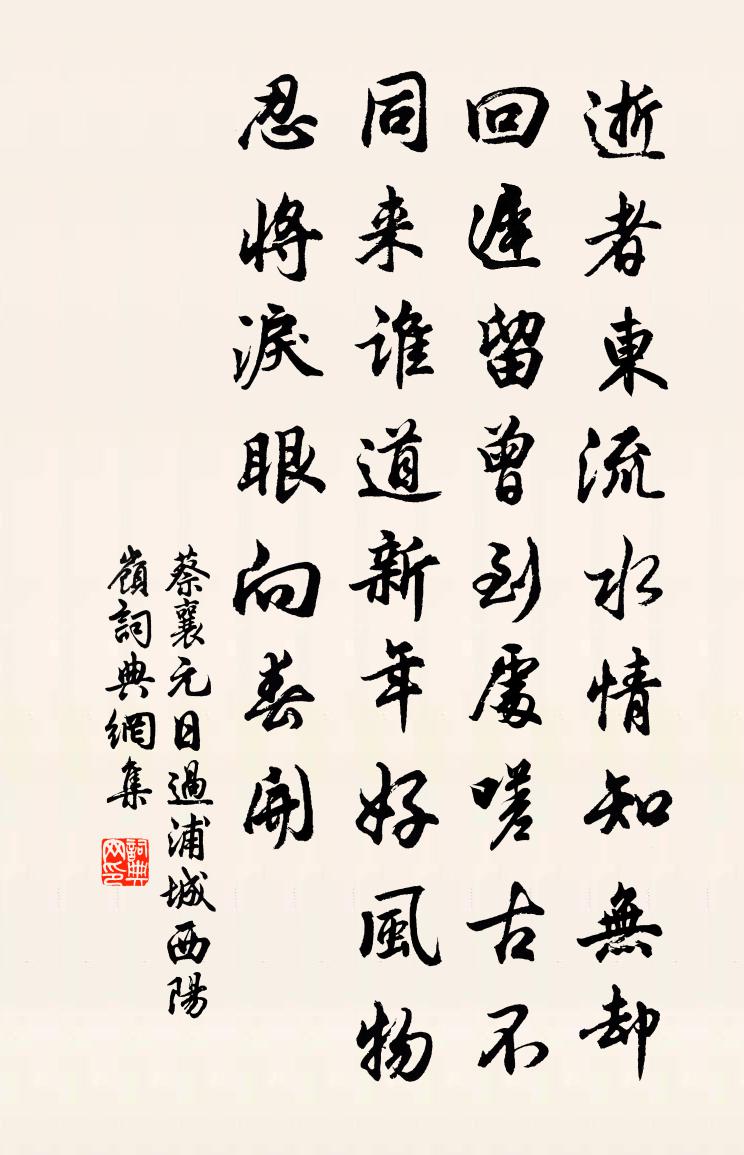 逝者東流水情知無却
回遲留曾到處嗟古不
同来誰道新年好風物
忍將淚眼向春開
蔡襄元日過浦城西陽
嶺詞典網集
詞典网印